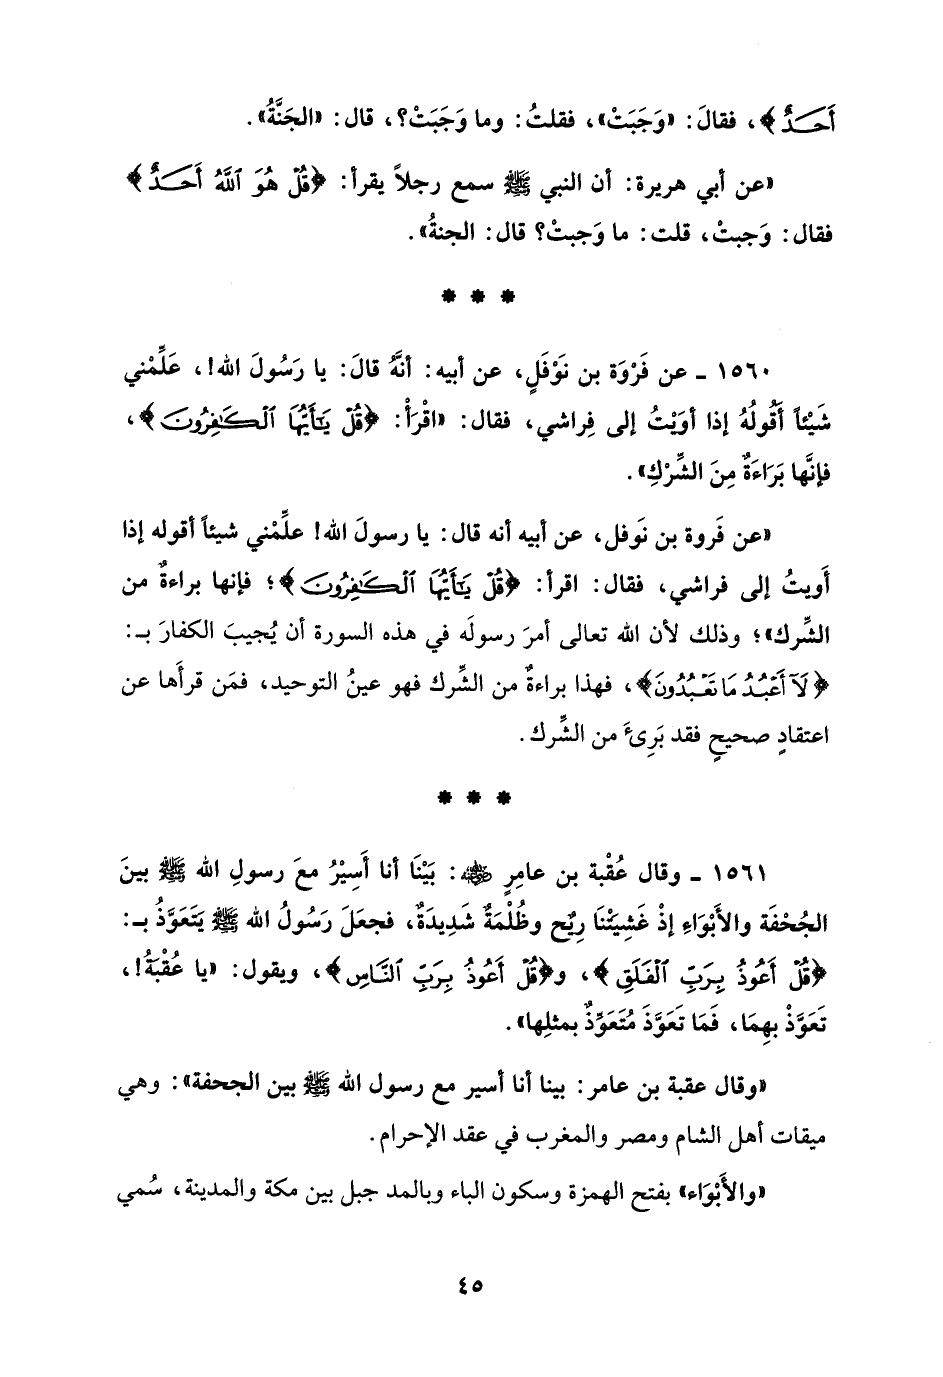 أَحَدٌ﴾، فقالَ: «وَجَبَتْ»، فقلتُ: وما وَجَبَتْ؟، قال: «الجَنَّةُ».
«عن أبي هريرة: أن النبي ﷺ سمع رجلاً يقرأ: ﴿قُلْ هُوَ ٱللَّهُ أَحَدٌ﴾
فقال: وَجبتْ، قلت: ما وَجبتْ؟ قال: الجنةُ».
* * *
١٥٦٠ ـ عن فَرْوَة بن نَوْفَلٍ، عن أبيه: أنَّهُ قالَ: يا رَسُولَ الله!، عَلِّمْني
شَيْئاً أَقُولُهُ إذا أوَيْتُ إلى فِراشي، فقال: «اقْرَأْ: ﴿قُلْ يَٰٓأَيُّهَا ٱلْكَٰفِرُونَ﴾،
فإنَّها بَرَاءَةٌ مِنَ الشِّرْكِ».
«عن فَروة بن نَوفل، عن أبيه أنه قال: يا رسولَ الله! علِّمْني شيئاً أقوله إذا
أَويتُ إلى فراشي، فقال: اقرأ: ﴿قُلْ يَٰٓأَيُّهَا ٱلْكَٰفِرُونَ﴾؛ فإنها براءةٌ من
الشِّرك»؛ وذلك لأن الله تعالى أمرَ رسولَه في هذه السورة أن يُجيبَ الكفارَ بـ:
﴿لَآ أَعْبُدُ مَا تَعْبُدُونَ﴾، فهذا براءةٌ من الشِّرك فهو عينُ التوحيد، فمَن قرأَها عن
اعتقادٍ صحيحٍ فقد بَرِئَ من الشِّرك.
* * *
١٥٦١ ـ وقال عُقْبة بن عامِرٍ رضي الله عنه: بَيْنَا أنا أَسِيْرُ معَ رسولِ الله ﷺ بينَ
الجُحْفَة والأَبْوَاءِ إذْ غَشِيَتْنَا رِيْح وظُلْمَةٌ شَديدَةٌ، فجعَلَ رَسُولُ الله ﷺ يَتَعَوَّذُ بـ:
﴿قُلْ أَعُوذُ بِرَبِّ ٱلْفَلَقِ﴾، و﴿قُلْ أَعُوذُ بِرَبِّ ٱلنَّاسِ﴾، ويقول: «يا عُقْبَةُ!،
تَعَوَّذْ بِهِمَا، فَمَا تَعَوَّذَ مُتَعَوِّذٌ بمثلِها».
«وقال عقبة بن عامر: بينا أنا أسير مع رسول الله ﷺ بين الجحفة»: وهي
ميقات أهل الشام ومصر والمغرب في عقد الإحرام.
«والأَبْوَاء» بفتح الهمزة وسكون الباء وبالمد جبل بين مكة والمدينة، سُمي
٤٥